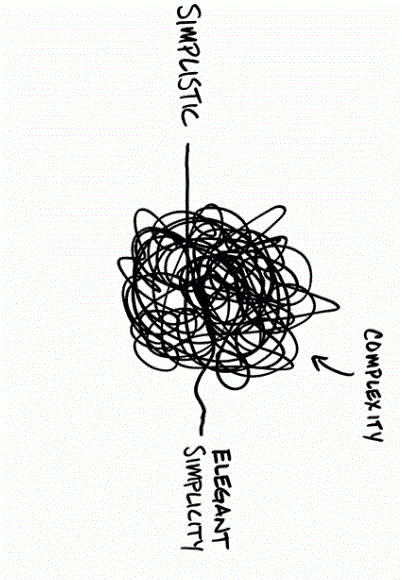 SIMPLISTIC
COMPLEXITY
ELEGANT
SIMPLICITY